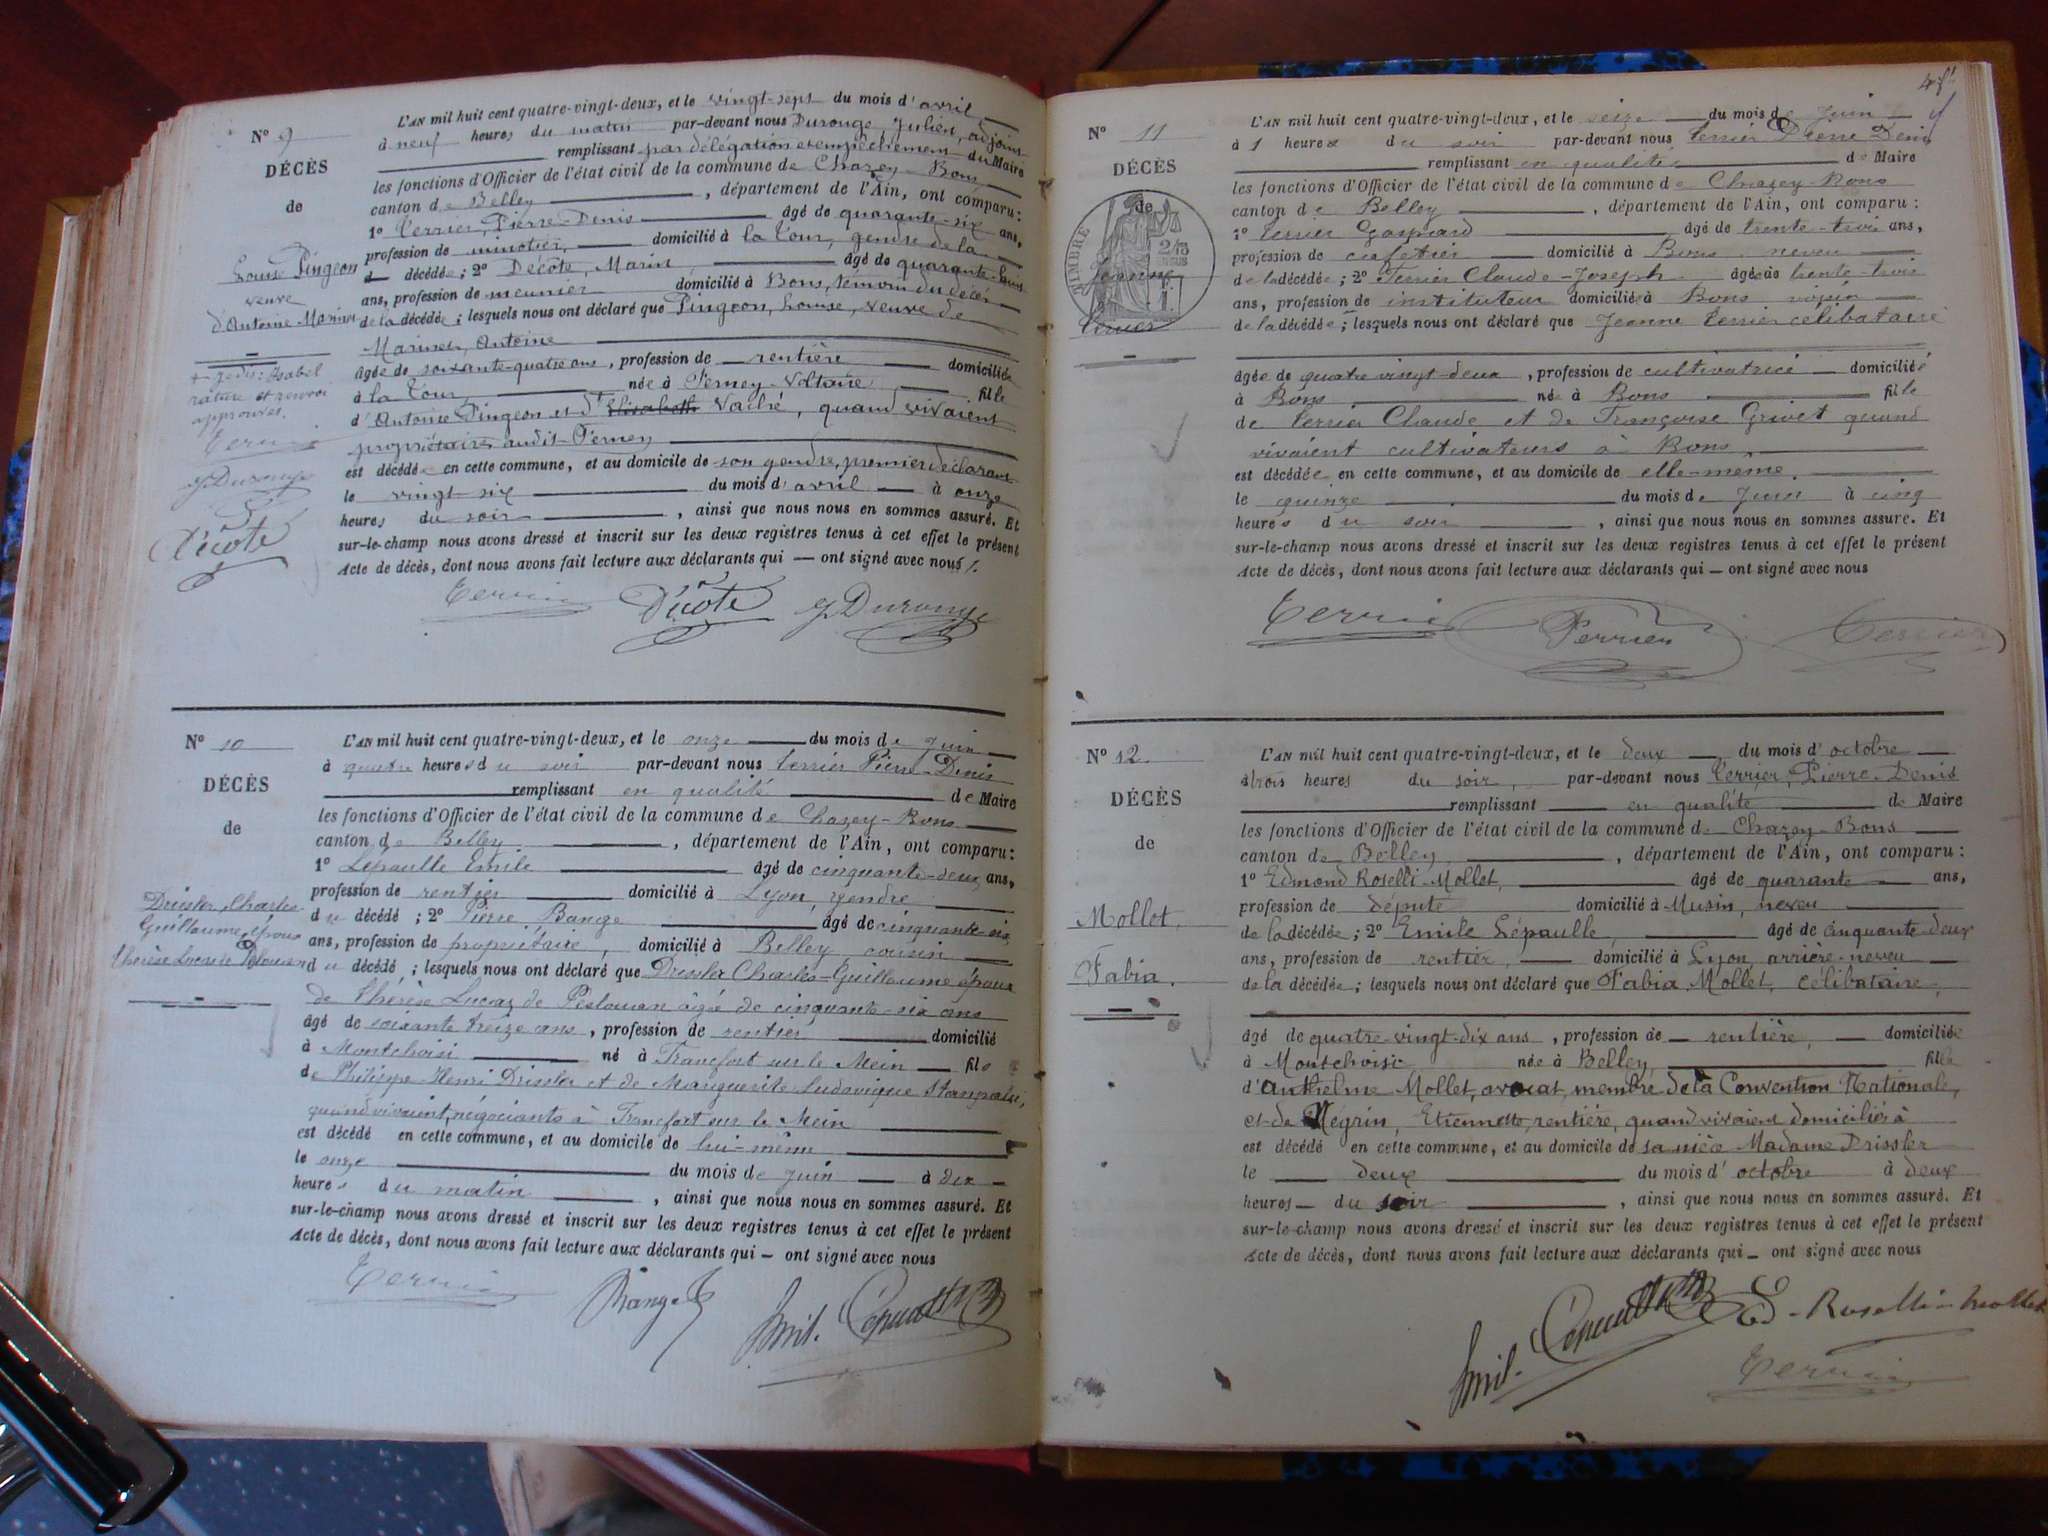 N° 9
DÉCÈS
de
Louise Pingeon
veuve
d'Antoine Marinet
rature et renvoi
approuvés.
J Duronge
Décote
L'AN mil huit cent quatre-vingt-deux, et le vingt-sept du mois d'avril
à neuf heures du matin par-devant nous Duronge, Julien, adjoint
remplissant par délégation et empêchement du Maire
les fonctions d'Officier de l'état civil de la commune de Chazey-Bons
canton de Belley, département de l'Ain, ont comparu:
1° Terrier, Pierre-Denis âgé de quarante-six ans,
profession de minotier, domicilié à la Tour, gendre de la
décédée; 2° Décôte, Marin âgé de quarante-huit
ans, profession de meunier domicilié à Bons, témoin du décès
de la décédée; lesquels nous ont déclaré que Pingeon, Louise, veuve de
Marinet, Antoine
âgée de soixante-quatre ans, profession de rentière domiciliée
à la Tour, née à Ferney-Voltaire fille
d'Antoine Pingeon et d'Elisabeth Vaché, quand vivaient
propriétaires audit Ferney
est décédée en cette commune, et au domicile de son gendre, premier déclarant
le vingt-six du mois d'avril à onze
heures du soir, ainsi que nous nous en sommes assuré. Et
sur-le-champ nous avons dressé et inscrit sur les deux registres tenus à cet effet le présent
Acte de décès, dont nous avons fait lecture aux déclarants qui — ont signé avec nous
Décote J Duronge
N° 10
DÉCÈS
de
Drissler, Charles
Guillaume, époux
Thérèse Lucas de Peslouan
L'AN mil huit cent quatre-vingt-deux, et le onze du mois de juin
à quatre heures du soir par-devant nous Terrier Pierre-Denis
remplissant en qualité de Maire
les fonctions d'Officier de l'état civil de la commune de Chazey-Bons
canton de Belley, département de l'Ain, ont comparu:
1° Lepaulle Emile âgé de cinquante-deux ans,
profession de rentier domicilié à Lyon, gendre
du décédé; 2° Pierre Bange âgé de cinquante-six
ans, profession de propriétaire, domicilié à Belley cousin
du décédé; lesquels nous ont déclaré que Drissler Charles-Guillaume époux
de Thérèse Lucas de Peslouan âgée de cinquante-six ans
âgé de soixante treize ans, profession de rentier domicilié
à Montchoisi né à Francfort sur le Mein fils
de Philippe Henri Drissler et de Marguerite Ludovique
quand vivaient, négociants à Francfort sur le Mein
est décédé en cette commune, et au domicile de lui-même
le onze du mois de juin à dix
heures du matin, ainsi que nous nous en sommes assuré. Et
sur-le-champ nous avons dressé et inscrit sur les deux registres tenus à cet effet le présent
Acte de décès, dont nous avons fait lecture aux déclarants qui — ont signé avec nous
N° 11
DÉCÈS
de
TIMBRE
Jeanne
Terrier
L'AN mil huit cent quatre-vingt-deux, et le seize du mois de Juin
à 1 heures du soir par-devant nous Terrier Pierre Denis
remplissant en qualité de Maire
les fonctions d'Officier de l'état civil de la commune de Chazey-Bons
canton de Belley, département de l'Ain, ont comparu:
1° Terrier Gaspard âgé de trente-trois ans,
profession de cafetier domicilié à Bons neveu
de la décédée; 2° Terrier Claude-Joseph âgé de trente-trois
ans, profession de instituteur domicilié à Bons voisin
de la décédée; lesquels nous ont déclaré que Jeanne Terrier célibataire
âgée de quatre vingt-deux, profession de cultivatrice domiciliée
à Bons né à Bons fille
de Terrier Claude et de Françoise Grivet quand
vivaient cultivateurs à Bons
est décédée en cette commune, et au domicile de elle-même
le quinze du mois de Juin à cinq
heures du soir, ainsi que nous nous en sommes assuré. Et
sur-le-champ nous avons dressé et inscrit sur les deux registres tenus à cet effet le présent
Acte de décès, dont nous avons fait lecture aux déclarants qui — ont signé avec nous
Terrier
N° 12
DÉCÈS
de
Mollet,
Fabia.
L'AN mil huit cent quatre-vingt-deux, et le deux du mois d'octobre
à trois heures du soir, par-devant nous Terrier, Pierre-Denis
remplissant en qualité de Maire
les fonctions d'Officier de l'état civil de la commune de Chazey-Bons
canton de Belley, département de l'Ain, ont comparu:
1° Edmond Roselli-Mollet, âgé de quarante ans,
profession de député domicilié à Musin, neveu
de la décédée; 2° Emile Lépaulle, âgé de cinquante deux
ans, profession de rentier, domicilié à Lyon, arrière-neveu
de la décédée; lesquels nous ont déclaré que Fabia Mollet, célibataire,
âgé de quatre-vingt-dix ans, profession de rentière, domiciliée
à Montchoisi née à Belley, fille
d'Anthelme Mollet, avocat, membre de la Convention Nationale,
et de Négrin, Etiennette, rentière, quand vivaient domiciliés à
est décédé en cette commune, et au domicile de sa nièce Madame Drissler
le deux du mois d'octobre à deux
heures du soir, ainsi que nous nous en sommes assuré. Et
sur-le-champ nous avons dressé et inscrit sur les deux registres tenus à cet effet le présent
Acte de décès, dont nous avons fait lecture aux déclarants qui — ont signé avec nous
Ed-Roselli-Mollet